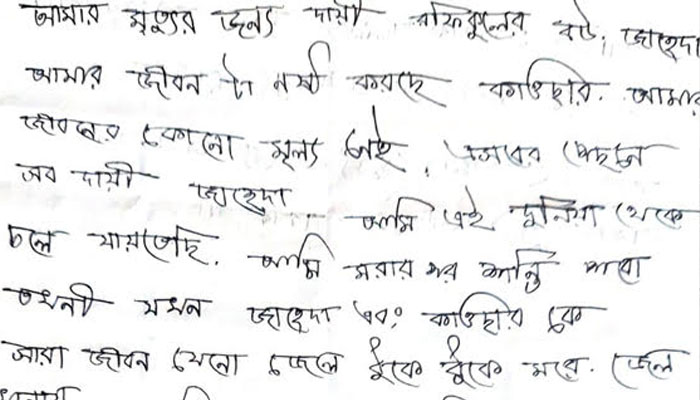 আমার মৃত্যুর জন্য দায়ী রফিকুলের বউ, জাহেদা
আমার জীবন টা নষ্ট করছে কাওছার. আমার
জীবনের কোনো মূল্য নেই, এসবের পেছনে
সব দায়ী জাহেদা
আমি এই দুনিয়া থেকে
চলে যায়তেছি. আমি মরার পর শান্তি পাবো
তখনী যখন জাহেদা এবং কাওছার কে
সারা জীবন যেনো জেলে ধুঁকে ধুঁকে মরে. জেল